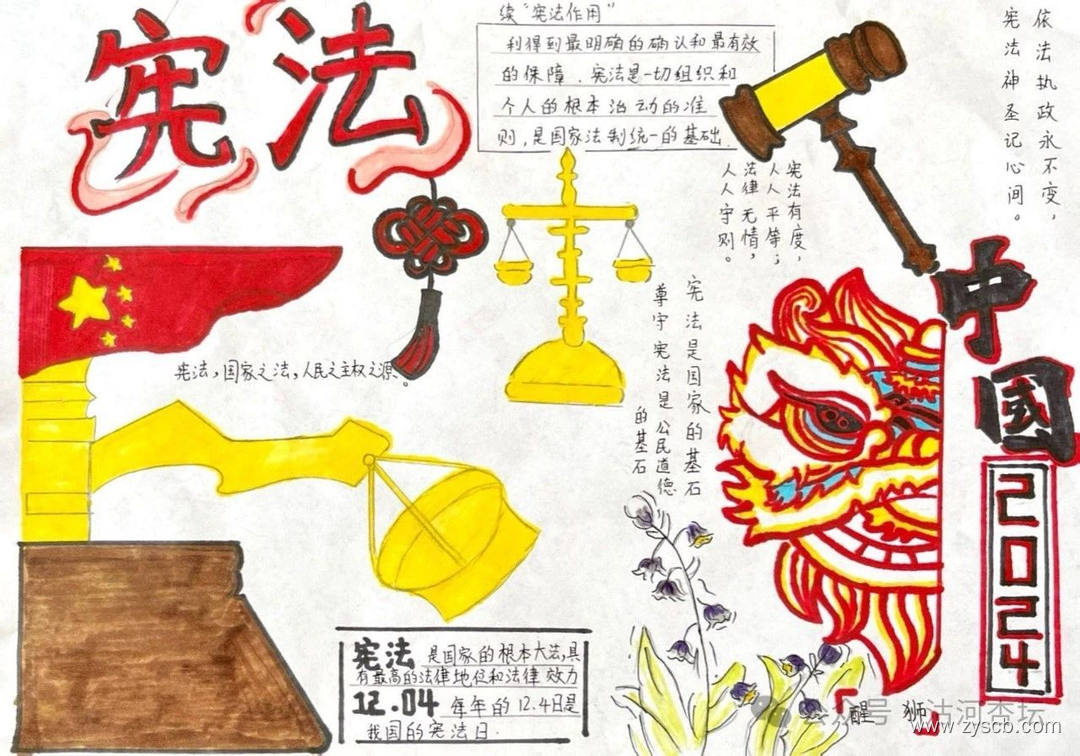 宪法
续“宪法作用”
利得到最明确的确认和最有效
的保障．宪法是一切组织和
个人的根本治动的准
则，是国家法制统一的基础．
依法执政永不变，
宪法神圣记心间。
宪法有度，
人人平等；
法律无情，
人人守则。
宪法，国家之法，人民之主权之源。
宪法是国家的基石
尊守宪法是公民道德
的基石
中國
2024
宪法是国家的根本大法，具
有最高的法律地位和法律效力
12.04每年的12.4日是
我国的宪法日．
醒狮
www.zyscb.com